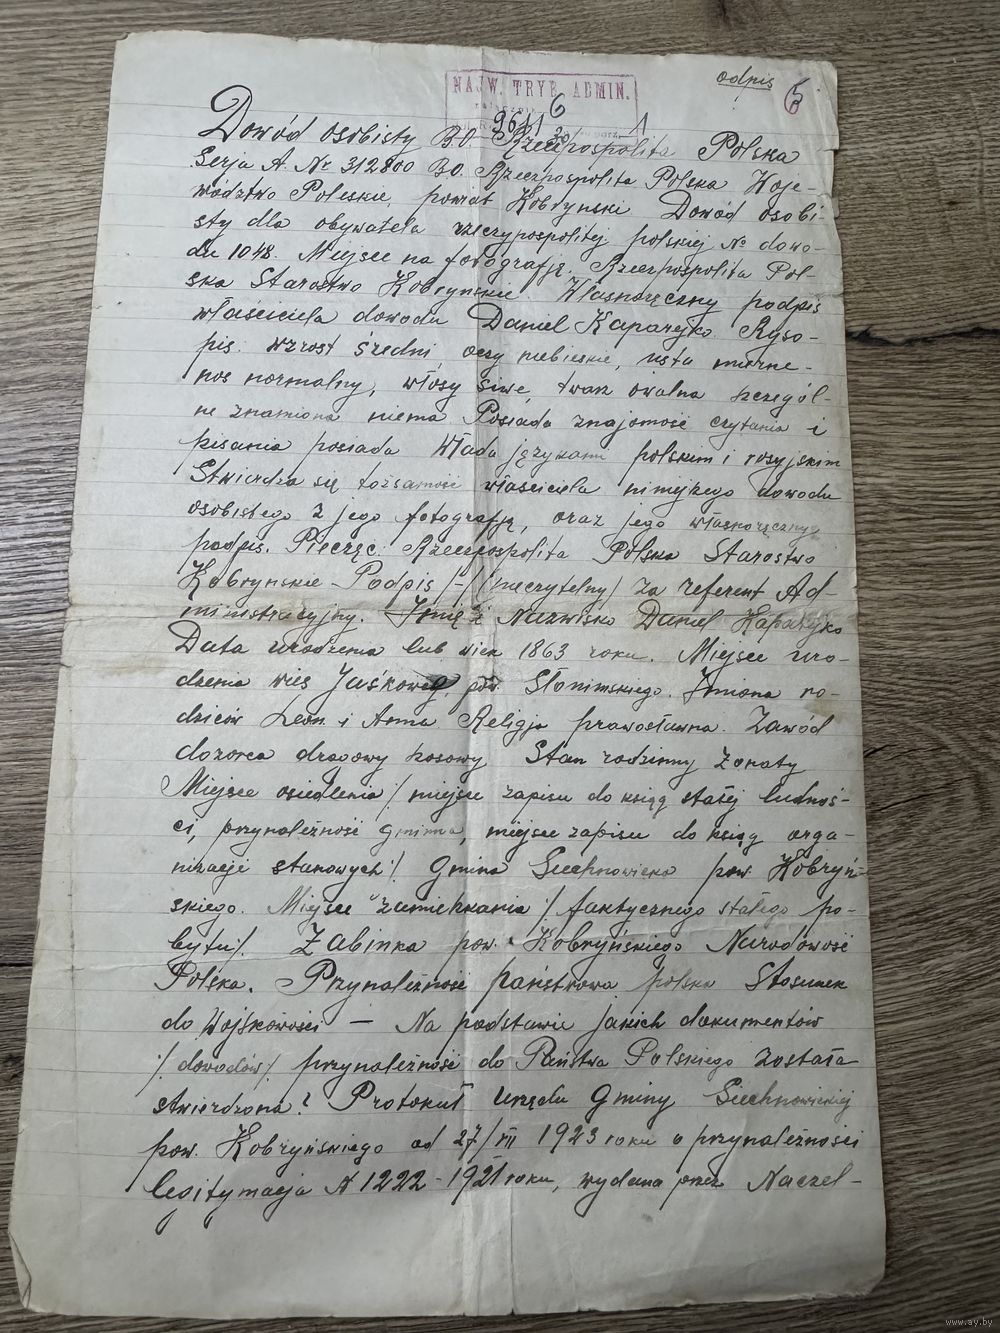 odpis
6
5
NAJW. TRYB. ADMIN.
6
9611
30
1
Dowód osobisty BO Rzeczpospolita Polska
Serja A. Nr 312800 BO. Rzeczpospolita Polska Woje-
wództwo Poleskie, powiat Kobrynski Dowód osobi-
sty dla obywatela rzeczypospolitej polskiej № dowo-
du 1048. Miejsce na fotografję. Rzeczpospolita Pol-
ska Starostwo Kobrynskie. Własnoręczny podpis
właściciela dowodu Daniel Kaparyko. Ryso-
pis: wzrost średni, oczy niebieskie, usta mierne-
nos normalny, włosy siwe, twarz owalna szczegól-
ne znamiona niema Posiada znajomość czytania i
pisania posiada Włada językami polskim i rosyjskim
Stwierdza się tożsamość właściciela niniejszego dowodu
osobistego z jego fotografją, oraz jego własnoręczny
podpis. Pieczęc: Rzeczpospolita Polska Starostwo
Kobrynskie – Podpis /-/ (nieczytelny) za referent Ad-
ministracyjny. Imię i Nazwisko Daniel Kaparyko
Data urodzenia lub wiek 1863 roku. Miejsce uro-
dzenia wieś pow. Słonimskiego. Imiona ro-
dziców Leon i Anna Religja prawosławna. Zawód
dozorca drogowy szosowy Stan rodzinny żonaty
Miejsce osiedlenia /miejsce zapisu do ksiąg stałej ludnoś-
ci, przynależność gminna, miejsce zapisu do ksiąg orga-
nizacji stanowych/. Gmina Siechnowicka pow. Kobryń-
skiego. Miejsce zamieszkania / faktycznego stałego po-
bytu/. Żabinka pow. Kobryńskiego Narodowość
Polska. Przynależność państwowa polska Stosunek
do Wojskowości — Na podstawie jakich dokumentów
/dowodów/ przynależność do Państwa Polskiego została
stwierdzona? Protokuł Urzędu Gminy Siechnowickiej
pow. Kobryńskiego od 27/VII 1923 roku o przynależności
legitymacja N 1222 - 1921 roku, wydana przez Naczel-
www.ay.by